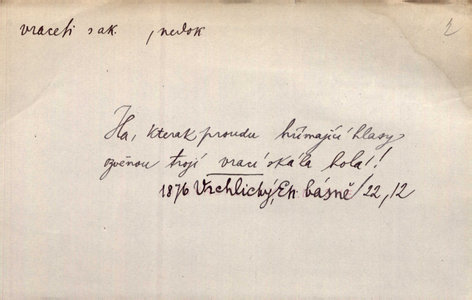 vraceti s ak. , nedok
2
Ha, kterak proudu hřmající hlasy
ozvěnou trojí vrací skála holá!
1876 Vrchlický, Ep. básně / 22, 12